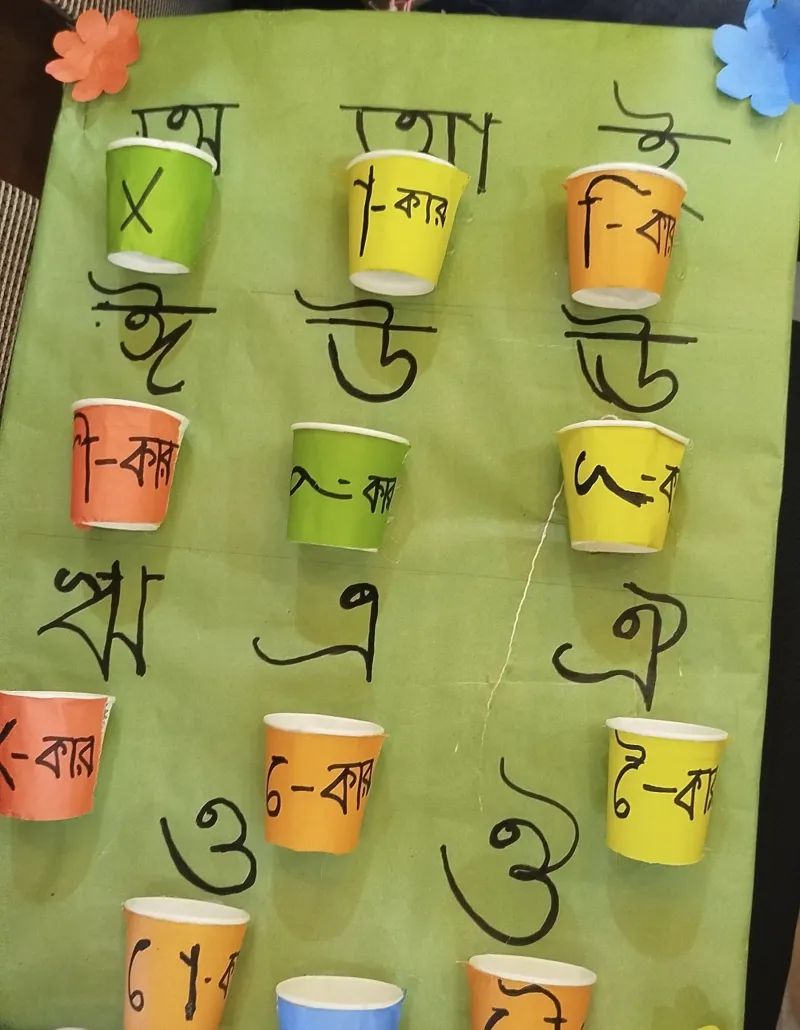 অ আ ই
X া-কার ি-কার
ঈ উ ঊ
ী-কার ু-কার ূ-ক
ঋ এ ঐ
ৃ-কার ে-কার ৈ-কার
ও ঔ
ে া-ক ৌ